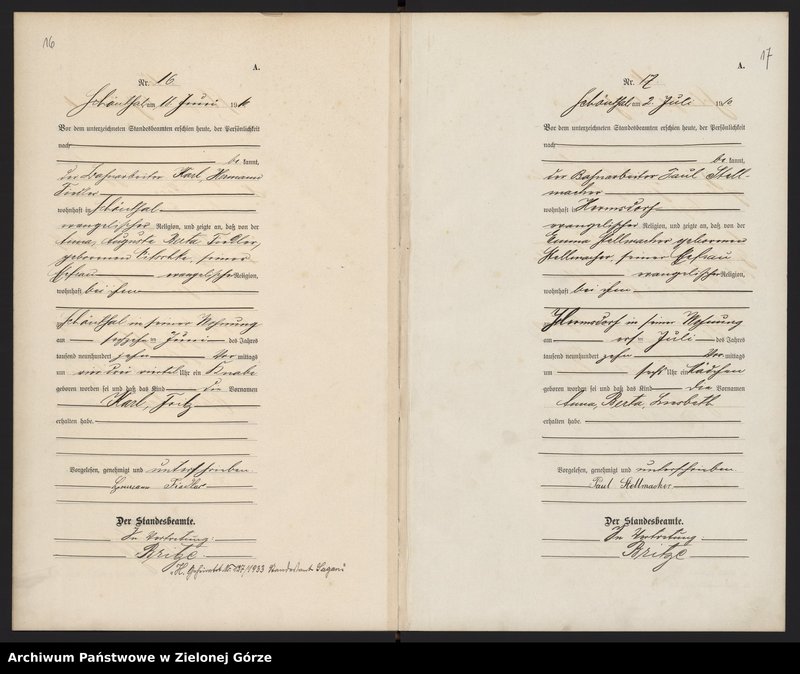 16
A.
Nr. 16
Schönthal am 11 Juni 1910
Vor dem unterzeichneten Standesbeamten erschien heute, der Persönlichkeit
nach
be kannt,
der Bahnarbeiter Karl, Hermann
Fiedler
wohnhaft in Schönthal
evangelischer Religion, und zeigte an, daß von der
Anna, Auguste Berta Fiedler,
geborenen seiner
Ehefrau evangelischer Religion,
wohnhaft bei ihm
Schönthal in seiner Wohnung
am ten Juni des Jahres
tausend neunhundert zehn Vor mittags
um ein drei viertel Uhr ein Knabe
geboren worden sei und daß das Kind die Vornamen
Karl, Fritz
erhalten habe.
Vorgelesen, genehmigt und unterschrieben
Hermann Fiedler
Der Standesbeamte.
In Vertretung.
Britze
"H. Geheiratet Nr. 137/1933 Standesamt Sagan"
17
A.
Nr. 17
Schönthal am 2 Juli 1910
Vor dem unterzeichneten Standesbeamten erschien heute, der Persönlichkeit
nach
be kannt,
der Bahnarbeiter Paul Stell
macher
wohnhaft in Hermsdorf
evangelischer Religion, und zeigte an, daß von der
Emma Stellmacher geborenen
Stellmacher, seiner Ehefrau
evangelischer Religion,
wohnhaft bei ihm
Hermsdorf in seiner Wohnung
am ersten Juli des Jahres
tausend neunhundert zehn Vor mittags
um sechs Uhr ein Mädchen
geboren worden sei und daß das Kind die Vornamen
Anna, Berta, Liesbeth
erhalten habe.
Vorgelesen, genehmigt und unterschrieben
Paul Stellmacher
Der Standesbeamte.
In Vertretung
Britze
Archiwum Państwowe w Zielonej Górze